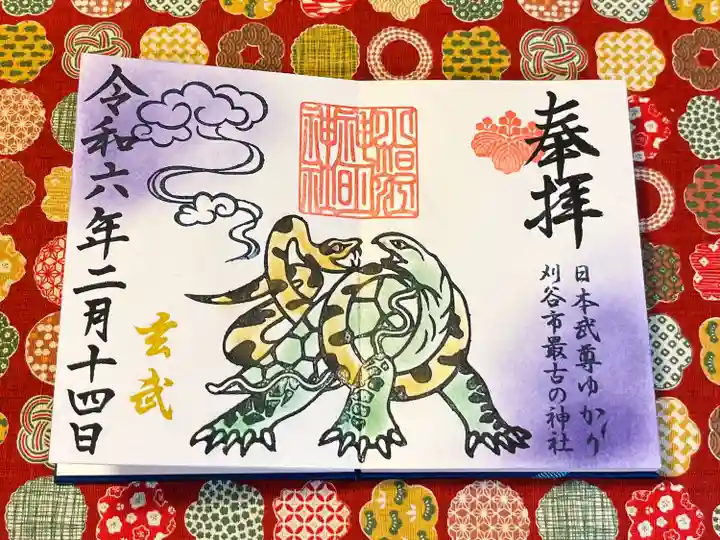 奉拝
日本武尊ゆかり
刈谷市最古の神社
玄武
令和六年二月十四日